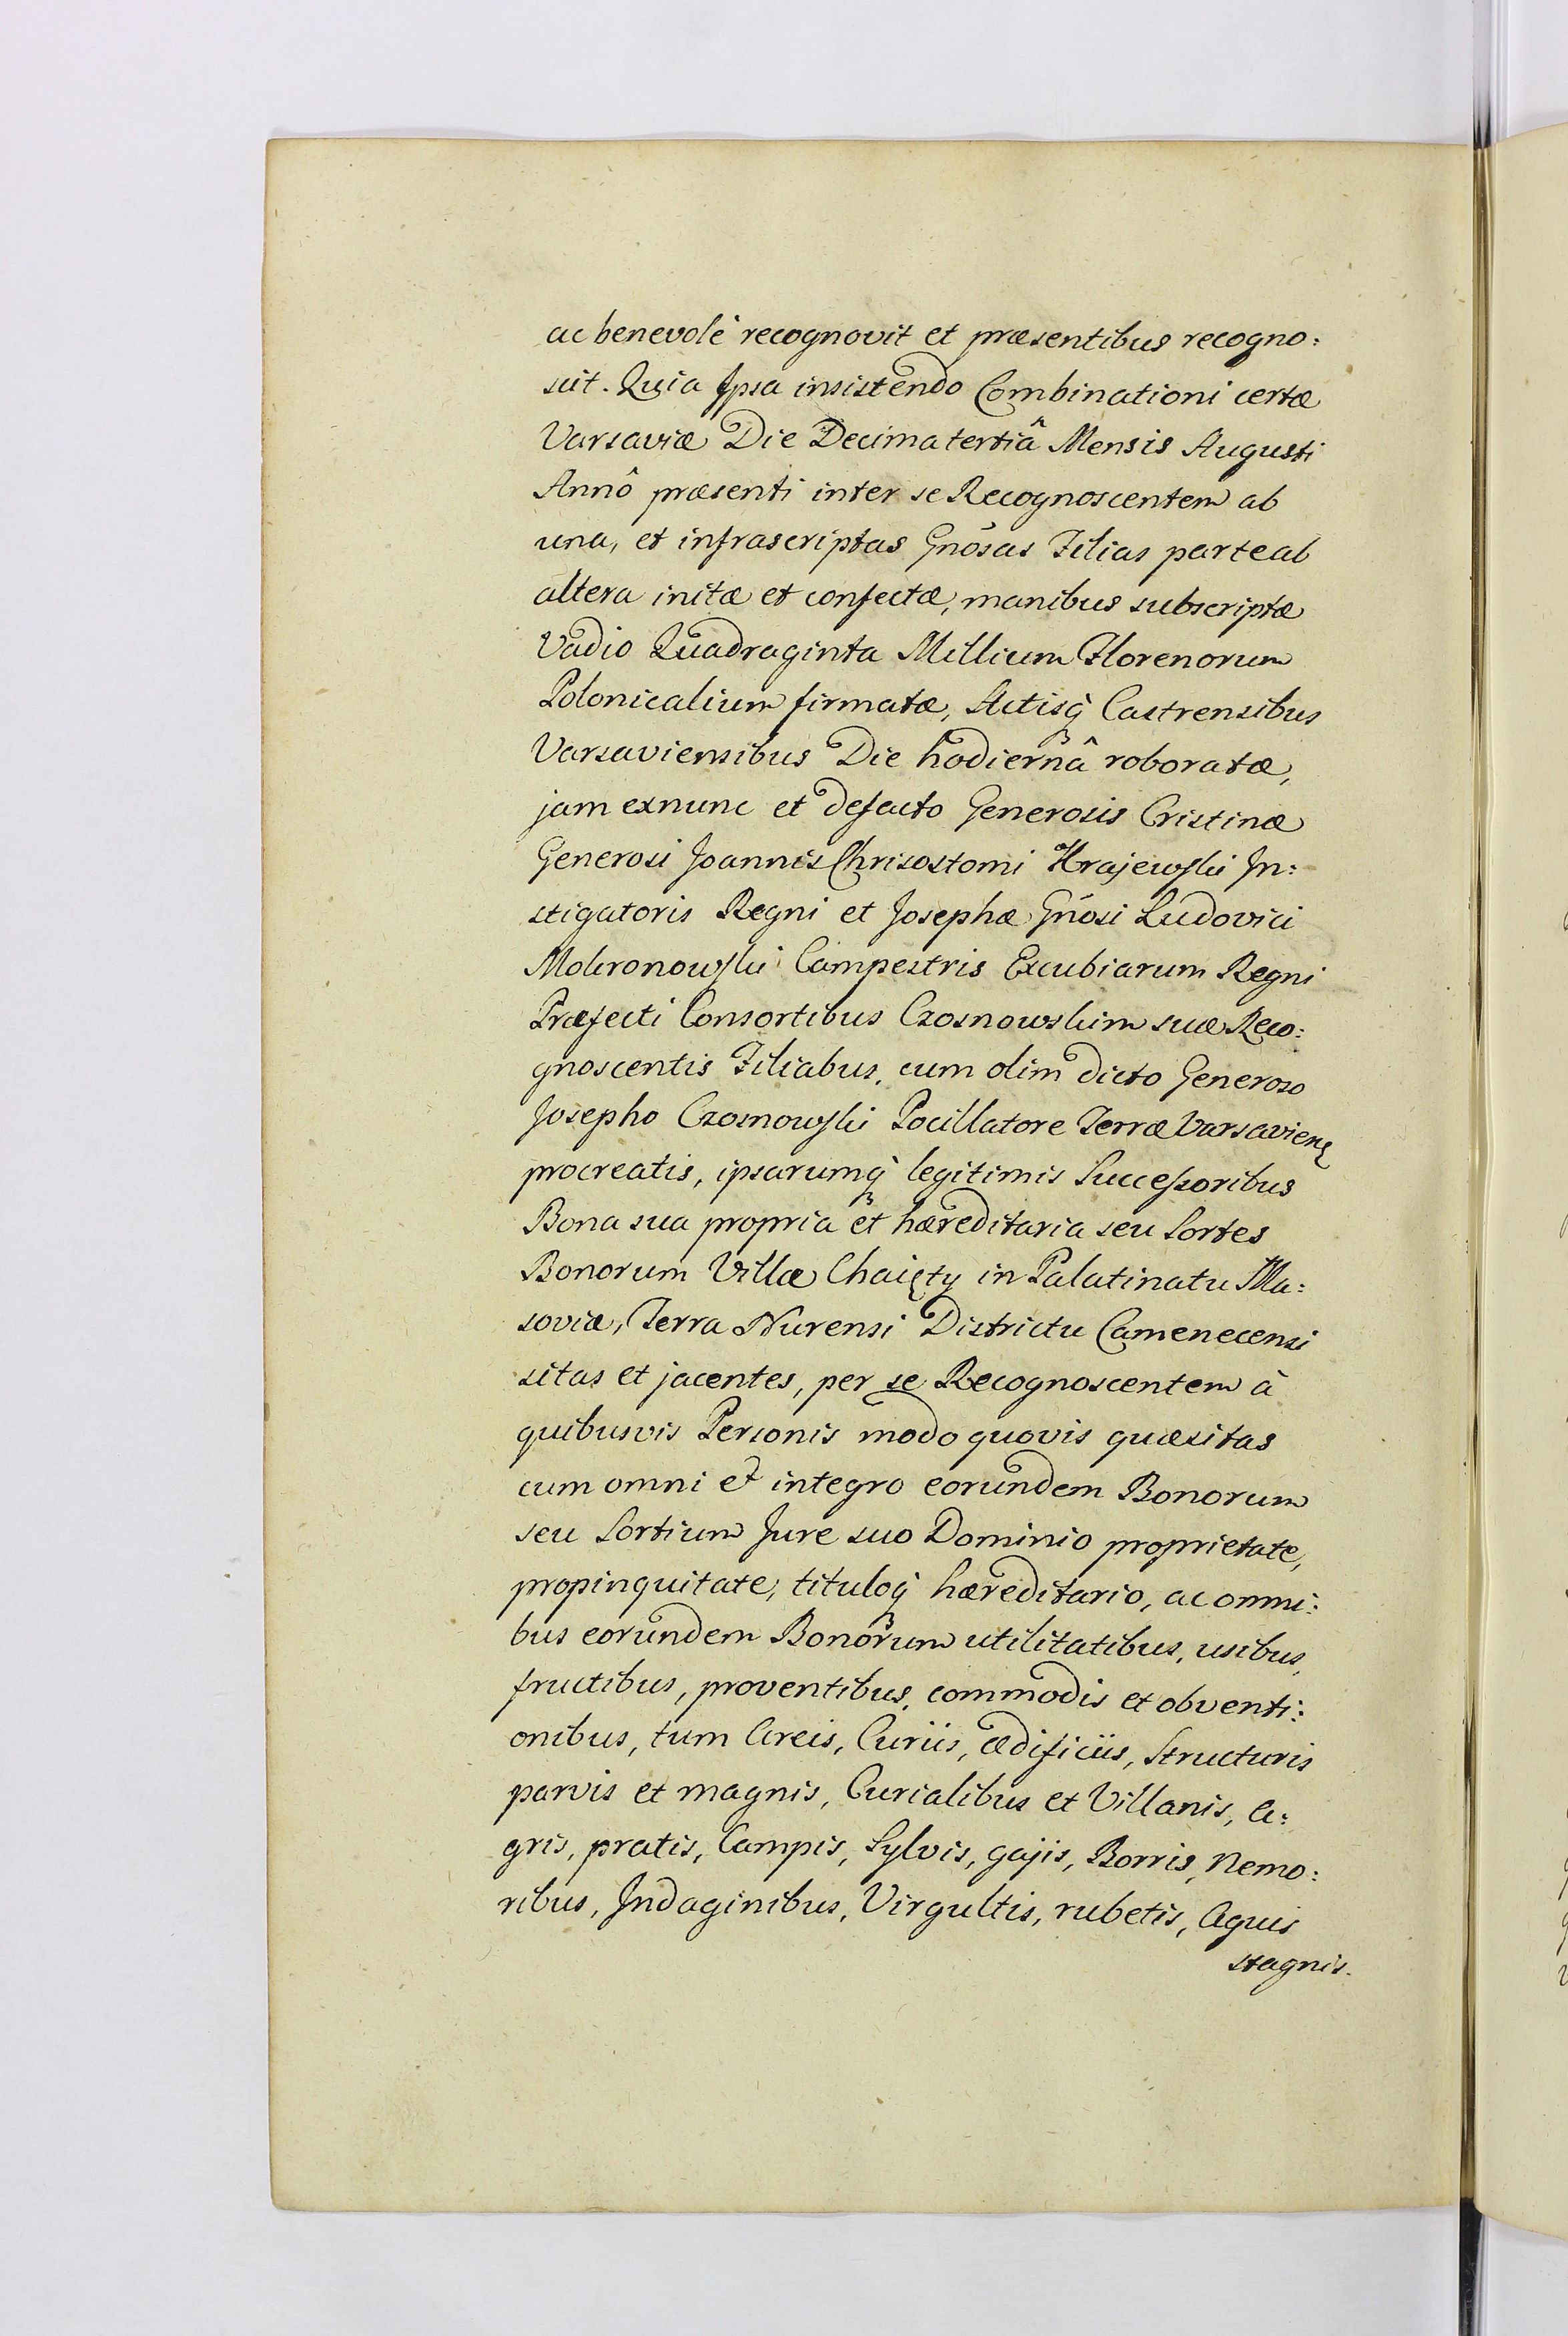 ac benevolè recognovit et præsentibus recogno:
scit. Quia Ipsa insistendo Combinationi certæ
Varsaviæ Die Decima tertiâ Mensis Augusti
Annô præsenti inter se Recognoscentem ab
una, et infrascriptas Gnõsas Filias parte ab
altera initæ et confectæ, manibus subscriptæ
Vadio Quadraginta Millium Florenorum
Polonicalium firmatæ, Actisq̀ꝫ Castrensibus
Varsaviensibus Die hodiernâ roboratæ,
jam exnunc et defacto Generosis Cristinæ
Generosi Joannis Chrisostomi Krajewski In:
stigatoris Regni et Josephæ Gñosi Ludovici
Mokronowski Campestris Excubiarum Regni
Præfecti Consortibus Czosnowskim suæ Reco:
gnoscentis Filiabus, cum olim dicto Generoso
Josepho Czosnowski Pocillatore Terræ Varsavien̄
procreatis, ipsarumq̀ꝫ legitimis Successoribus
Bona sua propria et hæreditaria seu Sortes
Bonorum Villæ Chaięty in Palatinatu Ma:
soviæ, Terra Nurensi Districtu Camenecensi
sitas et jacentes, per se Recognoscentem à
quibusvis Personis modo quovis quæsitas
cum omni et integro eorundem Bonorum
seu Sortium Jure suo Dominio proprietate,
propinquitate, tituloq̀ꝫ hæreditario, ac omni:
bus eorundem Bonorum utilitatibus, usibus,
fructibus, proventibus, commodis et obventi:
onibus, tum Areis, Curiis, ædificiis, Structuris
parvis et magnis, Curialibus et Villanis, A:
gris, pratis, Campis, Sylvis, gajis, Borris, Nemo:
ribus, Indaginibus, Virgultis, rubetis, Aquis
stagnis.